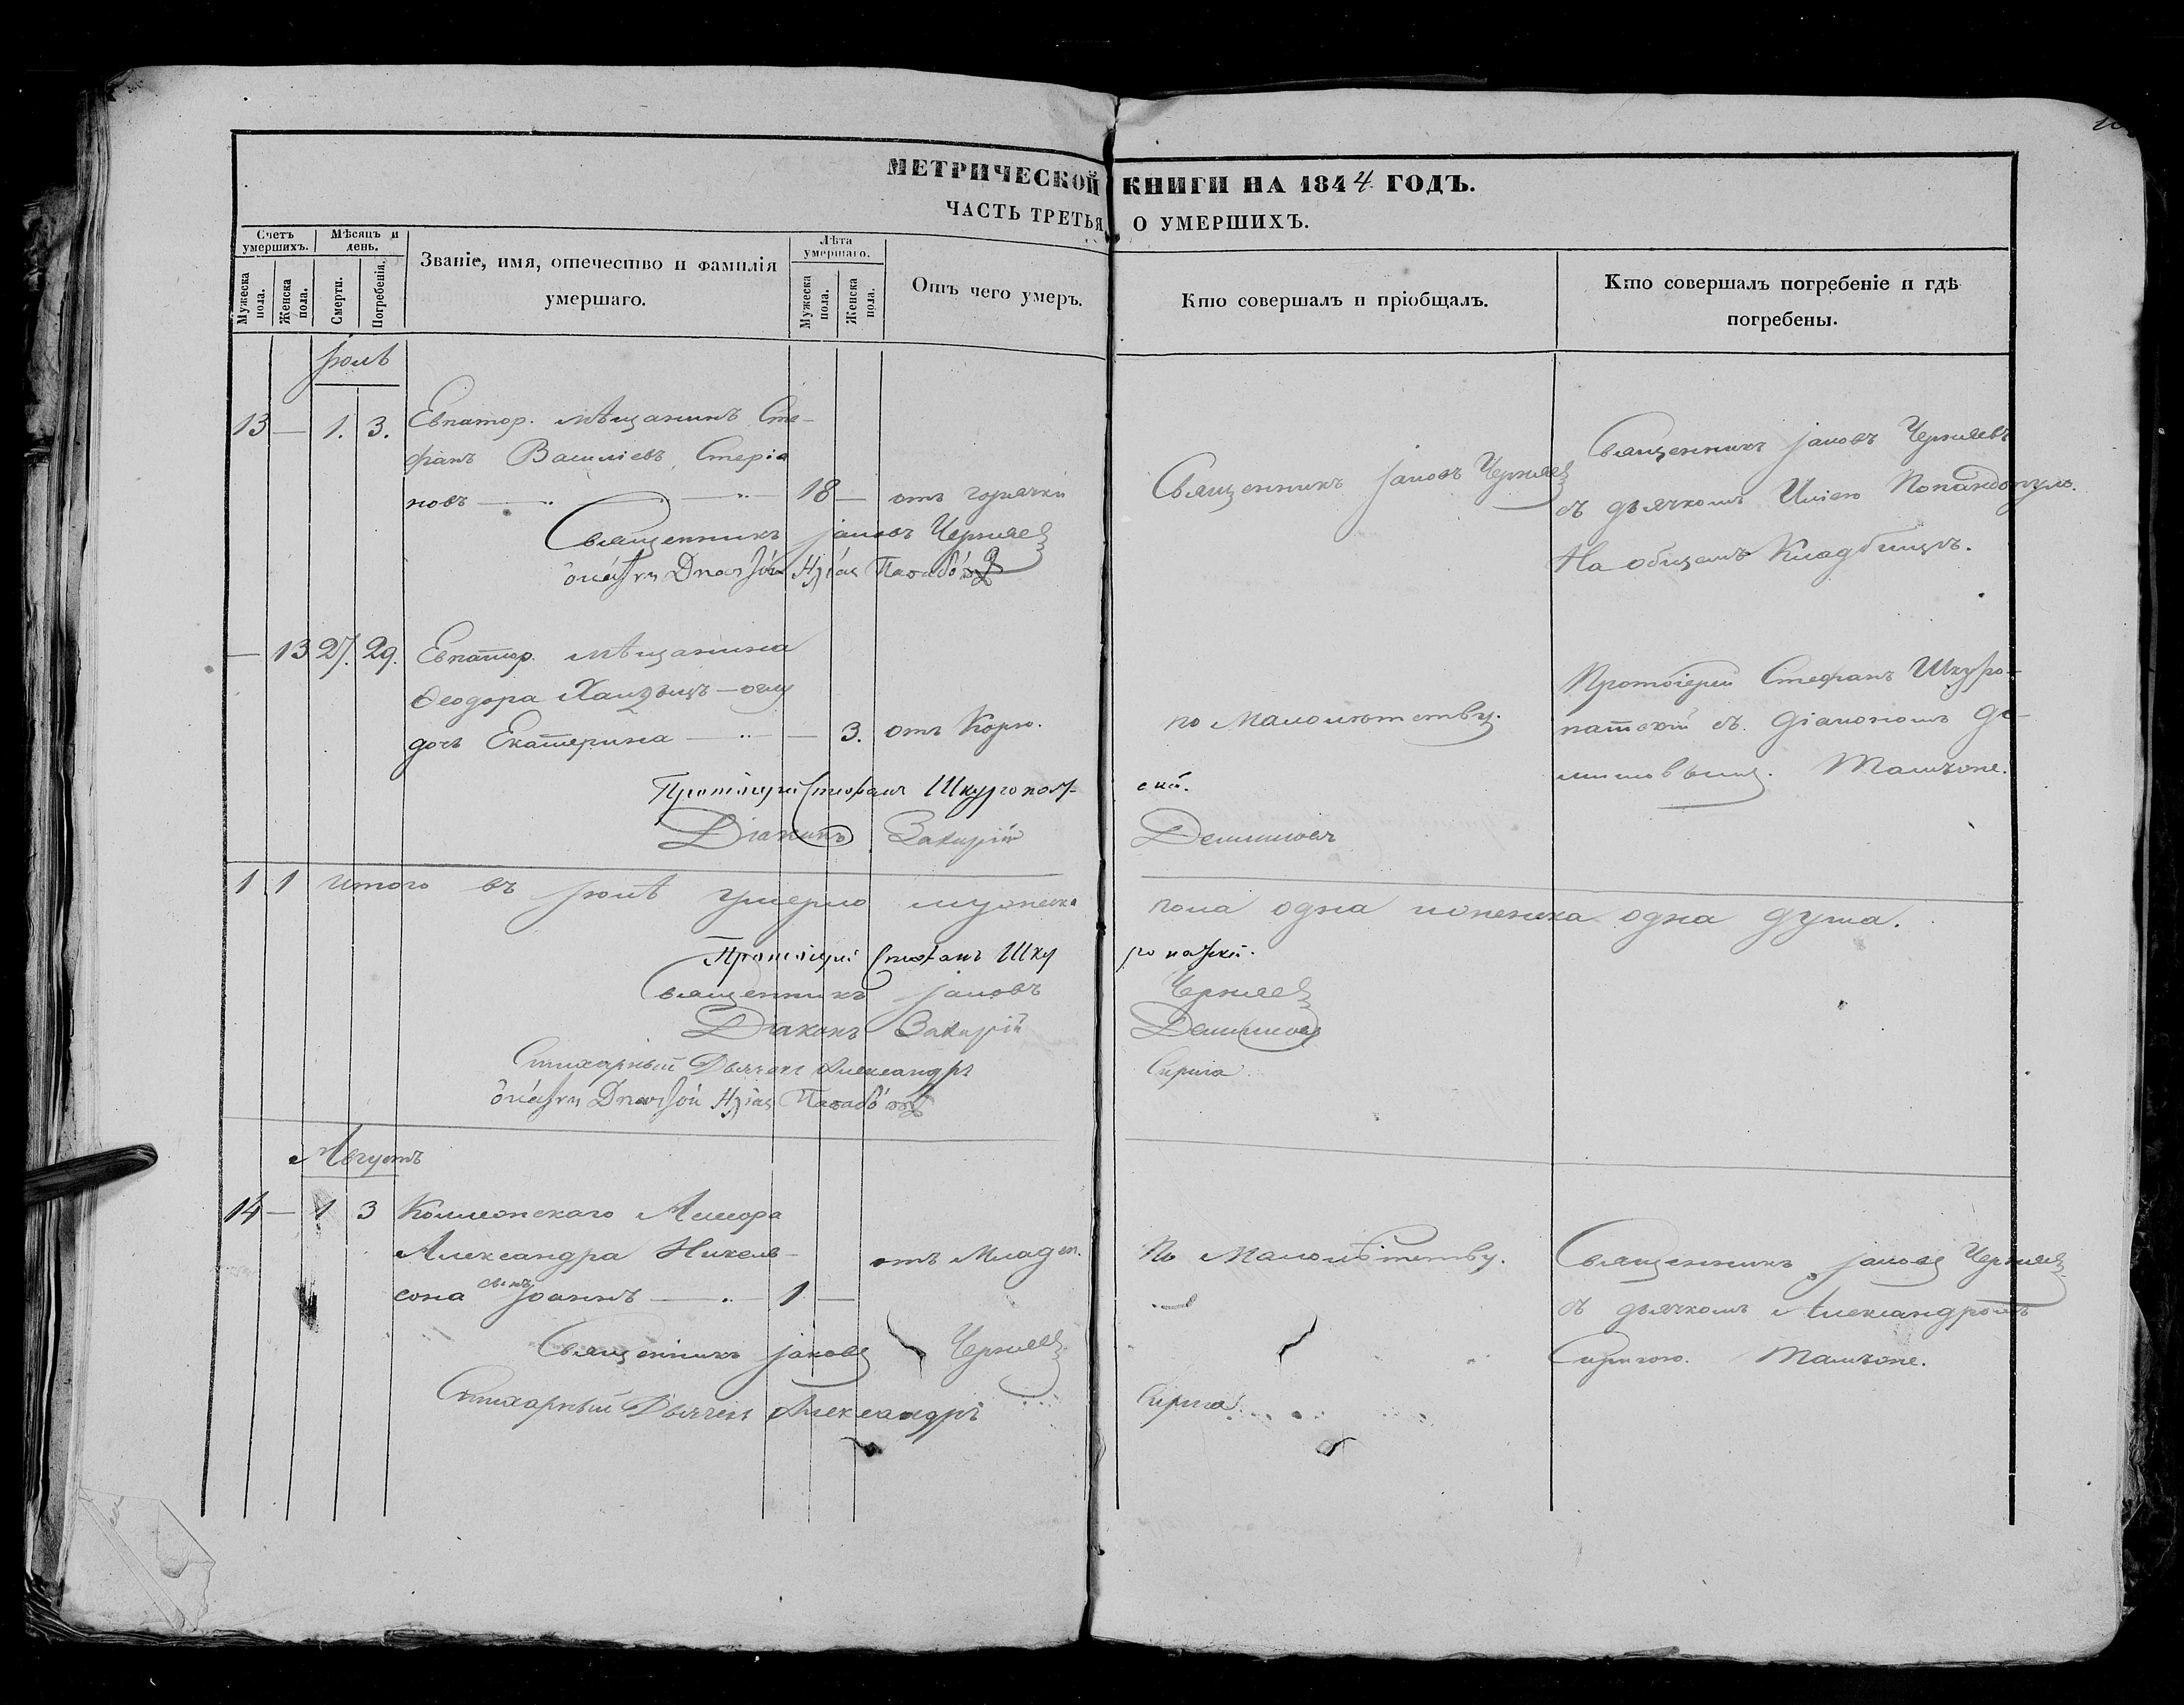 МЕТРИЧЕСКОЙ КНИГИ НА 1844 ГОДЪ.
ЧАСТЬ ТРЕТЬЯ О УМЕРШИХЪ.
Счетъ умершихъ.
Мѣсяцъ и день.
Званіе, имя, отечество и фамилія умершаго.
Лѣта умершаго.
Отъ чего умеръ.
Кто совершалъ и пріобщалъ.
Кто совершалъ погребеніе и гдѣ погребены.
Мужеска пола.
Женска пола.
Смерти.
Погребенія.
Мужеска пола.
Женска пола.
Іюль
13 — 1. 3. Евпатор. мѣщанинъ Сте-
фанъ Василіевъ Стеріа
новъ — 18 — отъ горячки
Священникъ Іаковъ Черняев
Священникъ Іаковъ Черняевъ
съ дьячкомъ Иліею Попандопуло.
На общемъ Кладбищѣ.
Священникъ Іаковъ Черняев
— 13 27. 29. Евпатор. мѣщанина
Ѳеодора
дочь Екатерина — — 3. отъ Корю.
по Малолѣтству.
Протоіерей Стефанъ Шкуро-
патскій съ Діакономъ Де-
Тамъже.
Протоіерей Стефанъ Шкуропат-
скій.
Діаконъ Захарій
1 1 Итого въ Іюлѣ умерло мужеска пола одна и женска одна душа.
Протоіерей Стефанъ Шку
ропатскій.
Священникъ Іаковъ Черняев
Діаконъ Захарій
Стихарный Дьячекъ Александръ Сирига
Августъ
14 — 1 3 Коллежскаго Ассесора
Александра Никель-
сона сынъ Іоаннъ — 1 —
отъ Младен.
По Малолѣтству.
Священникъ Іаковъ Черняев
съ дьячкомъ Александромъ
Сиригою. Тамъже.
Священникъ Іаковъ Черняев
Стихарный Дьячекъ Александръ Сирига.